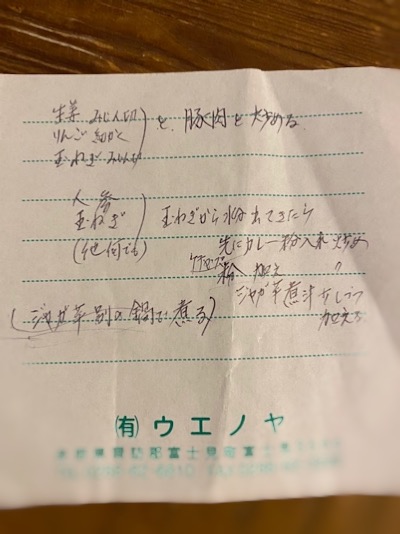 生姜 みじん切
りんご 細かく
玉ねぎ みじん切
と、豚肉を炒める
人参
玉ねぎ
(他何でも)
玉ねぎから水分出てきたら
先にカレー粉入れ炒め
粉 加え 〃
ジャガ芋煮汁少しづつ
加える
(ジャガ芋別の鍋で煮る)
(有)ウエノヤ
富士見町富士見